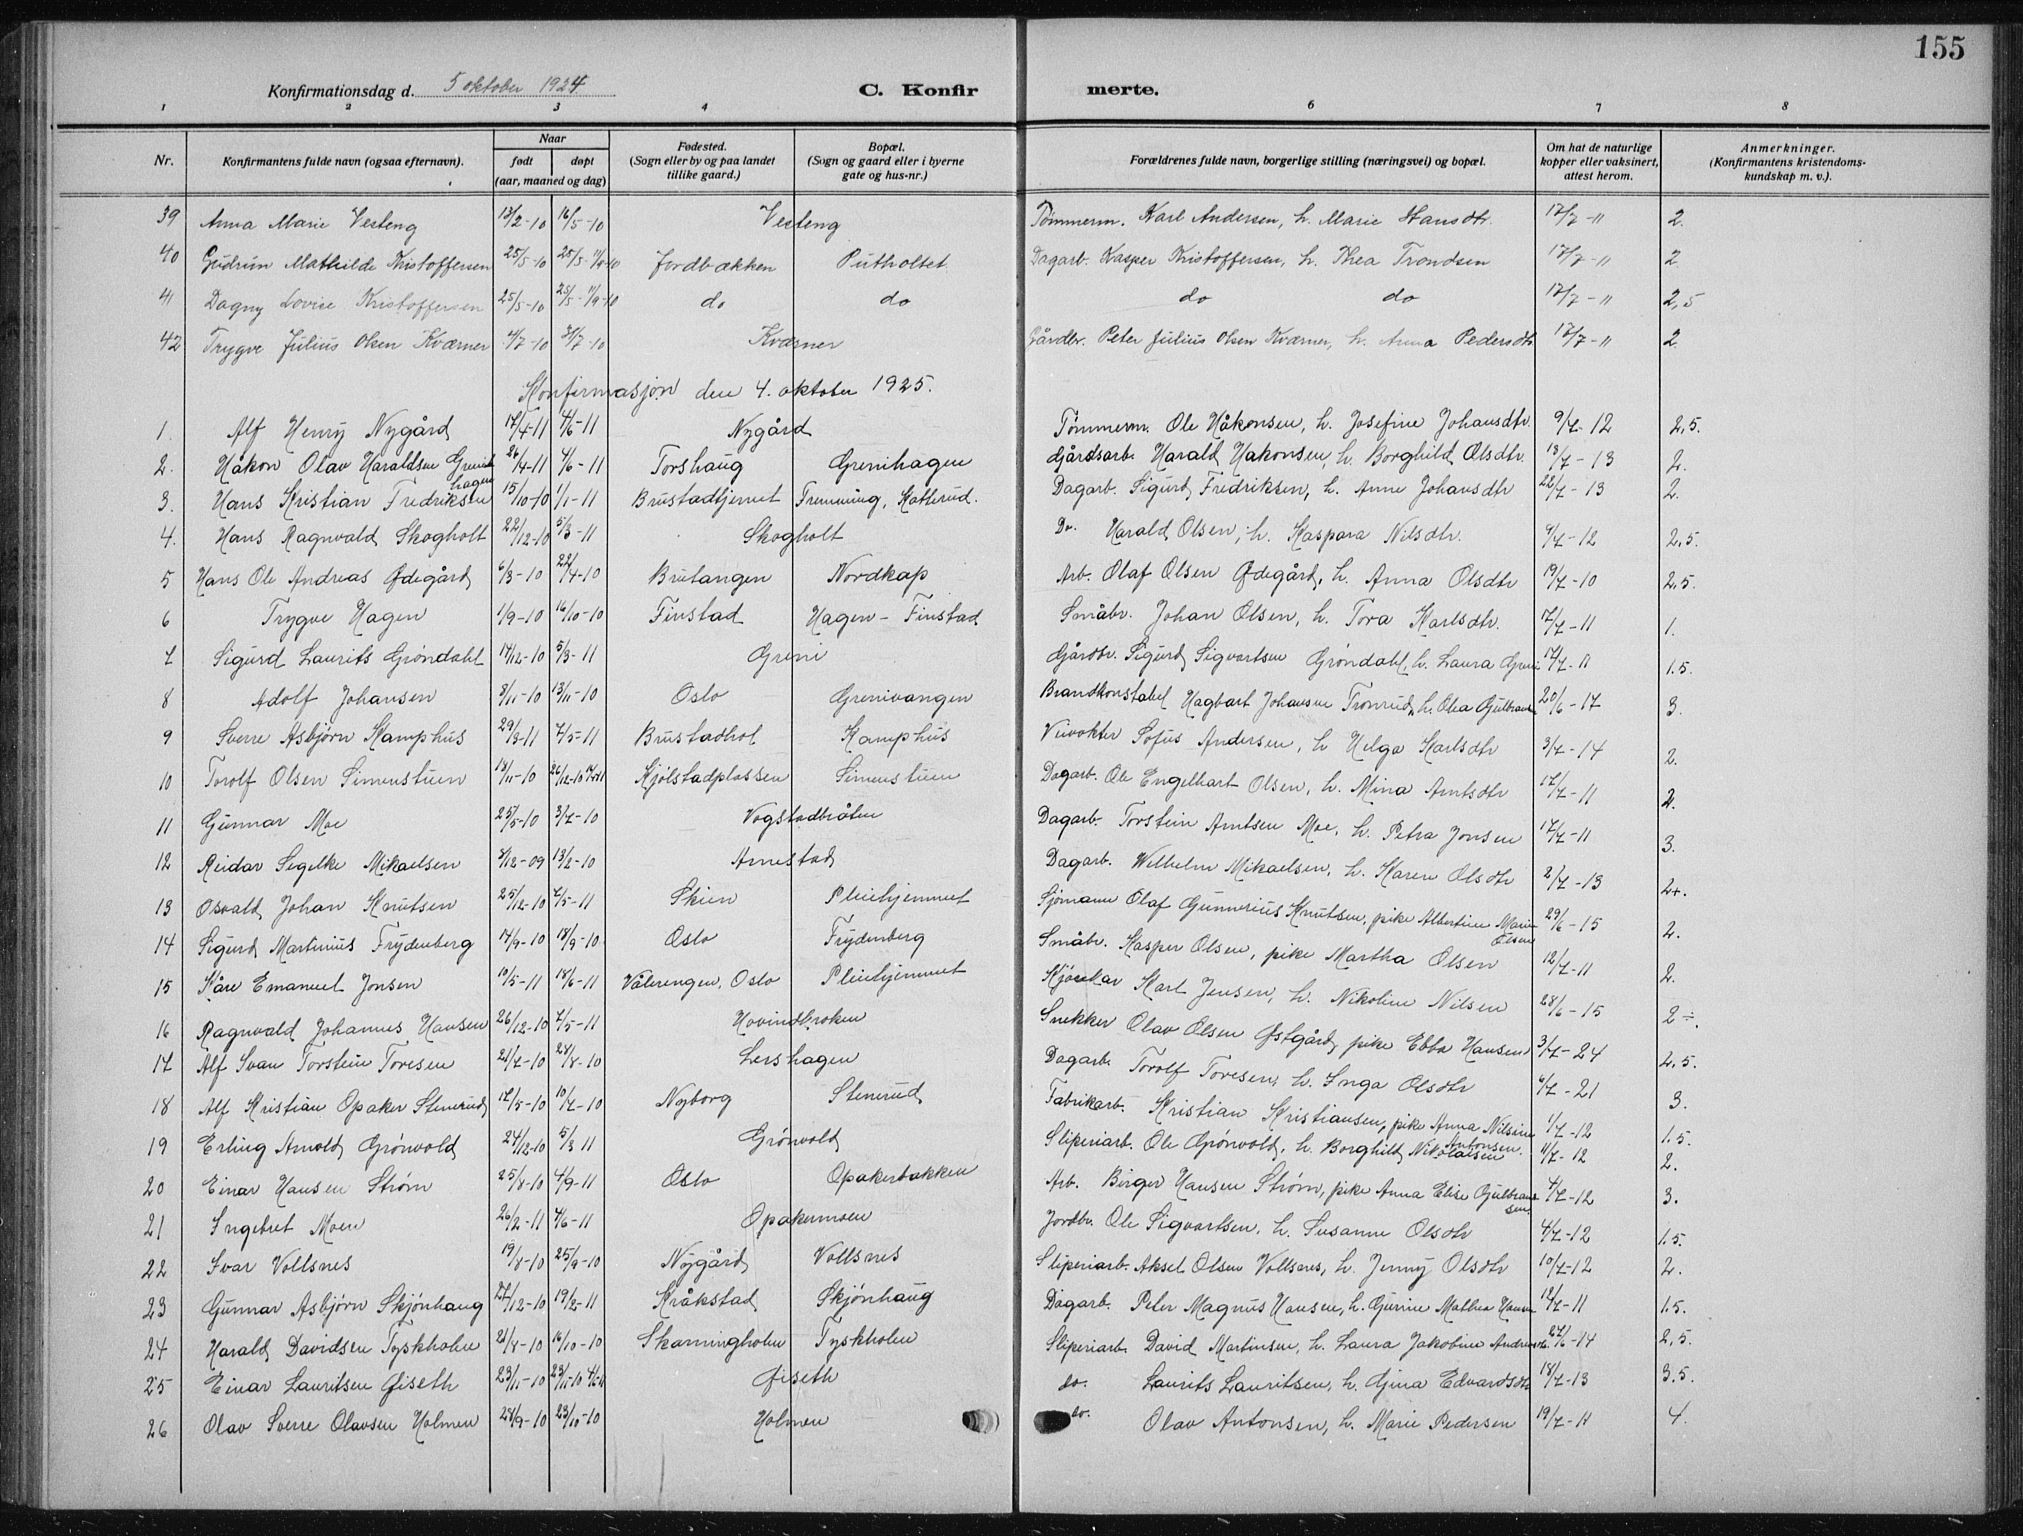 155
Konfirmationsdag d. 5 oktober 1924 C. Konfir merte.
1 2 3 4 6 7 8
Nr. Konfirmantens fulde navn (ogsaa efternavn). Naar født døpt (aar, maaned og dag) Fødested. (Sogn eller by og paa landet tillike gaard.) Bopæl. (Sogn og gaard eller i byerne gate og hus-nr.) Forældrenes fulde navn, borgerlige stilling (næringsvei) og bopæl. Om hat de naturlige kopper eller vaksinert, attest herom. Anmerkninger. (Konfirmantens kristendoms-kundskap m. v.).
39 Anna Marie Vesteng 13/2-10 16/5-10 Vesteng Tømmerm. Karl Andersen, h. Marie Hansdtr. 17/7-11 2.
40 Gudrun Mathilde Kristoffersen 25/5-10 25/5- 11/9-10 Jordbækken Putholtet Dagarb. Kasper Kristoffersen, h. Thea Trondsen 17/7-11 2
41 Dagny Lovise Kristoffersen 25/5-10 25/5- 11/9-10 do do do do 17/7-11 2,5
42 Trygve Julius Olsen Kværner 4/7-10 31/7-10 Kværner Gårdbr. Peter Julius Olsen Kværner, h. Anna Pedersdtr 17/7-11 2
Konfirmasjon den 4. oktober 1925.
1. Alf Henry Nygård 17/4-11 4/6-11 Nygård Tømmerm. Ole Håkonsen, h. Josefine Johansdtr. 9/7-12 2,5.
2. Håkon Olav Haraldsen Grenihagen 26/4-11 4/6-11 Torshaug Grenihagen Gårdsarb. Harald Hakonsen, h. Borghild Olsdtr. 18/7-13 2.
3. Hans Kristian Fredriksen 15/10-10 1/1-11 Brustadtjernet Fremning, Katterud. Dagarb. Sigurd Fredriksen, h. Anne Johansdtr 22/7-13 2.
4. Hans Ragnvald Skogholt 22/12-10 5/3-11 Skogholt Do. Harald Olsen, h. Kaspara Nilsdtr. 9/7-12 2,5.
5 Hans Ole Andreas Ødegård 6/3-10 22/4-10 Brutangen Nordkap Arb. Olaf Olsen Ødegård, h. Anna Olsdtr 19/7-10 2,5.
6 Trygve Hagen 1/9-10 16/10-10 Finstad Hagen - Finstad Småbr. Johan Olsen, h. Tora Karlsdtr. 17/7-11 1.
7 Sigurd Laurits Grøndahl 17/12-10 5/3-11 Greni Gårdbr. Sigurd Sigvartsen Grøndahl, h. Laura Greni 17/7-11 1.5.
8 Adolf Johansen 3/11-10 13/11-10 Oslo Grenivangen Brandkonstabel Hagbart Johansen Tronrud, h. Olea Gulbrans 20/6-17 3.
9 Sverre Asbjørn Kamphus 29/3-11 7/5-11 Brustadhol Kamphus Veivokter Sofus Andersen, h Helga Karlsdtr 3/7-14 2.
10 Torolf Olsen Simenstuen 13/11-10 26/12-10 Kjølstadplassen Simenstuen Dagarb. Ole Engelhart Olsen, h. Mina Arntsdtr 17/7-11 2.
11 Gunnar Moe 25/5-10 3/7-10 Vogstadbråten Dagarb. Torstein Arntsen Moe, h. Petra Jonsen 17/7-11 3.
12 Reidar Segelke Mikaelsen 8/12-09 13/2-10 Arnestad Dagarb. Wilhelm Mikaelsen, h. Karen Olsdtr 2/7-13 2+.
13 Osvald Johan Knutsen 25/12-10 7/5-11 Skien Pleiehjemmet Sjømann Olaf Gunnerius Knutsen, pike Albertine Marie Olsen 29/6-15 2.
14 Sigurd Martinius Frydenberg 14/9-10 18/9-10 Oslo Frydenberg Småbr. Kasper Olsen, pike Martha Olsen 12/7-11 2.
15 Kåre Emanuel Jonsen 19/5-11 18/6-11 Vålerengen, Oslo Pleiehjemmet Kjørekar Karl Jensen, h. Nikoline Nilsen 28/6-15 2÷.
16 Ragnvald Johannes Hansen 26/12-10 7/5-11 Hovindbroken Snekker Olav Olsen Østgård, pike Ebba Hansen 3/7-24 2,5.
17 Alf Ivan Torstein Toresen 21/7-10 28/8-10 Lershagen Dagarb. Torolf Toresen, h. Inga Olsdtr 6/7-21 3.
18 Alf Kristian Opaker Stenerud 17/5-10 10/7-10 Nyborg Stenerud Fabrikarb. Kristian Kristiansen, pike Anna Nilsine Antonsen. 1/7-12 1.5.
19 Erling Arnold Grønvold 24/12-10 5/3 11 Grønvold Sliperiarb. Ole Grønvold, h. Borghild Nikolaisen 11/7-12 2.
20 Einar Hansen Strøm 25/8-10 4/9-11 Oslo Opakerbakken Arb. Birger Hansen Strøm, pike Anna Elise Gulbrandsen 4/7-12 3.
21 Ingebret Moen 26/2-11 4/6-11 Opakermoen Jordbr. Ole Sigvartsen, h. Susanne Olsdtr 4/7-12 1.5.
22 Ivar Vollsnes 19/8-10 25/9-10 Nygård Vollsnes Sliperiarb. Aksel Olsen Vollsnes, h. Jenny Olsdtr 10/7-12 2.
23 Gunnar Asbjørn Skjønhaug 27/12-10 19/2-11 Kråkstad Skjønhaug Dagarb. Peter Magnus Hansen, h. Gurine Mathea Hansen 12/7-11 1.5.
24 Harald Davidsen Tyskholen 21/8-10 16/10-10 Skarningholen Tyskholen Sliperiarb. David Martinsen, h. Laura Jakobine Andresdtr. 27/6-14 2,5.
25 Einar Lauritsen Øiseth 23/11-10 23/11-10 Øiseth do. Laurits Lauritsen, h. Gina Edvardsdtr 18/7-13 3.5.
26 Olav Sverre Olavsen Holmen 28/9-10 23/10-10 Holmen do. Olav Antonsen, h. Marie Pedersen 19/7-11 4.